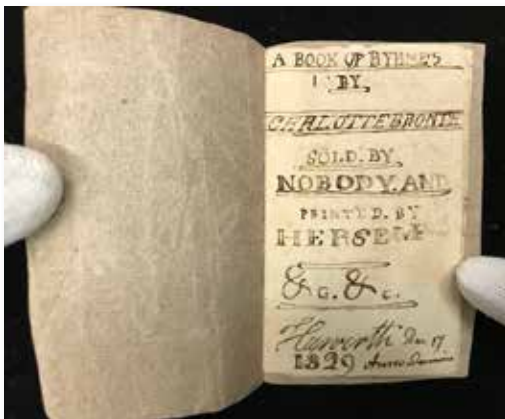 A BOOK OF RYHMES
BY,
CHARLOTTE BRONTE
SOLD. BY,
NOBODY. AND
PRINTED. BY
HERSELF
&c. &c.
Haworth Dec 17
1829 Anno Domini